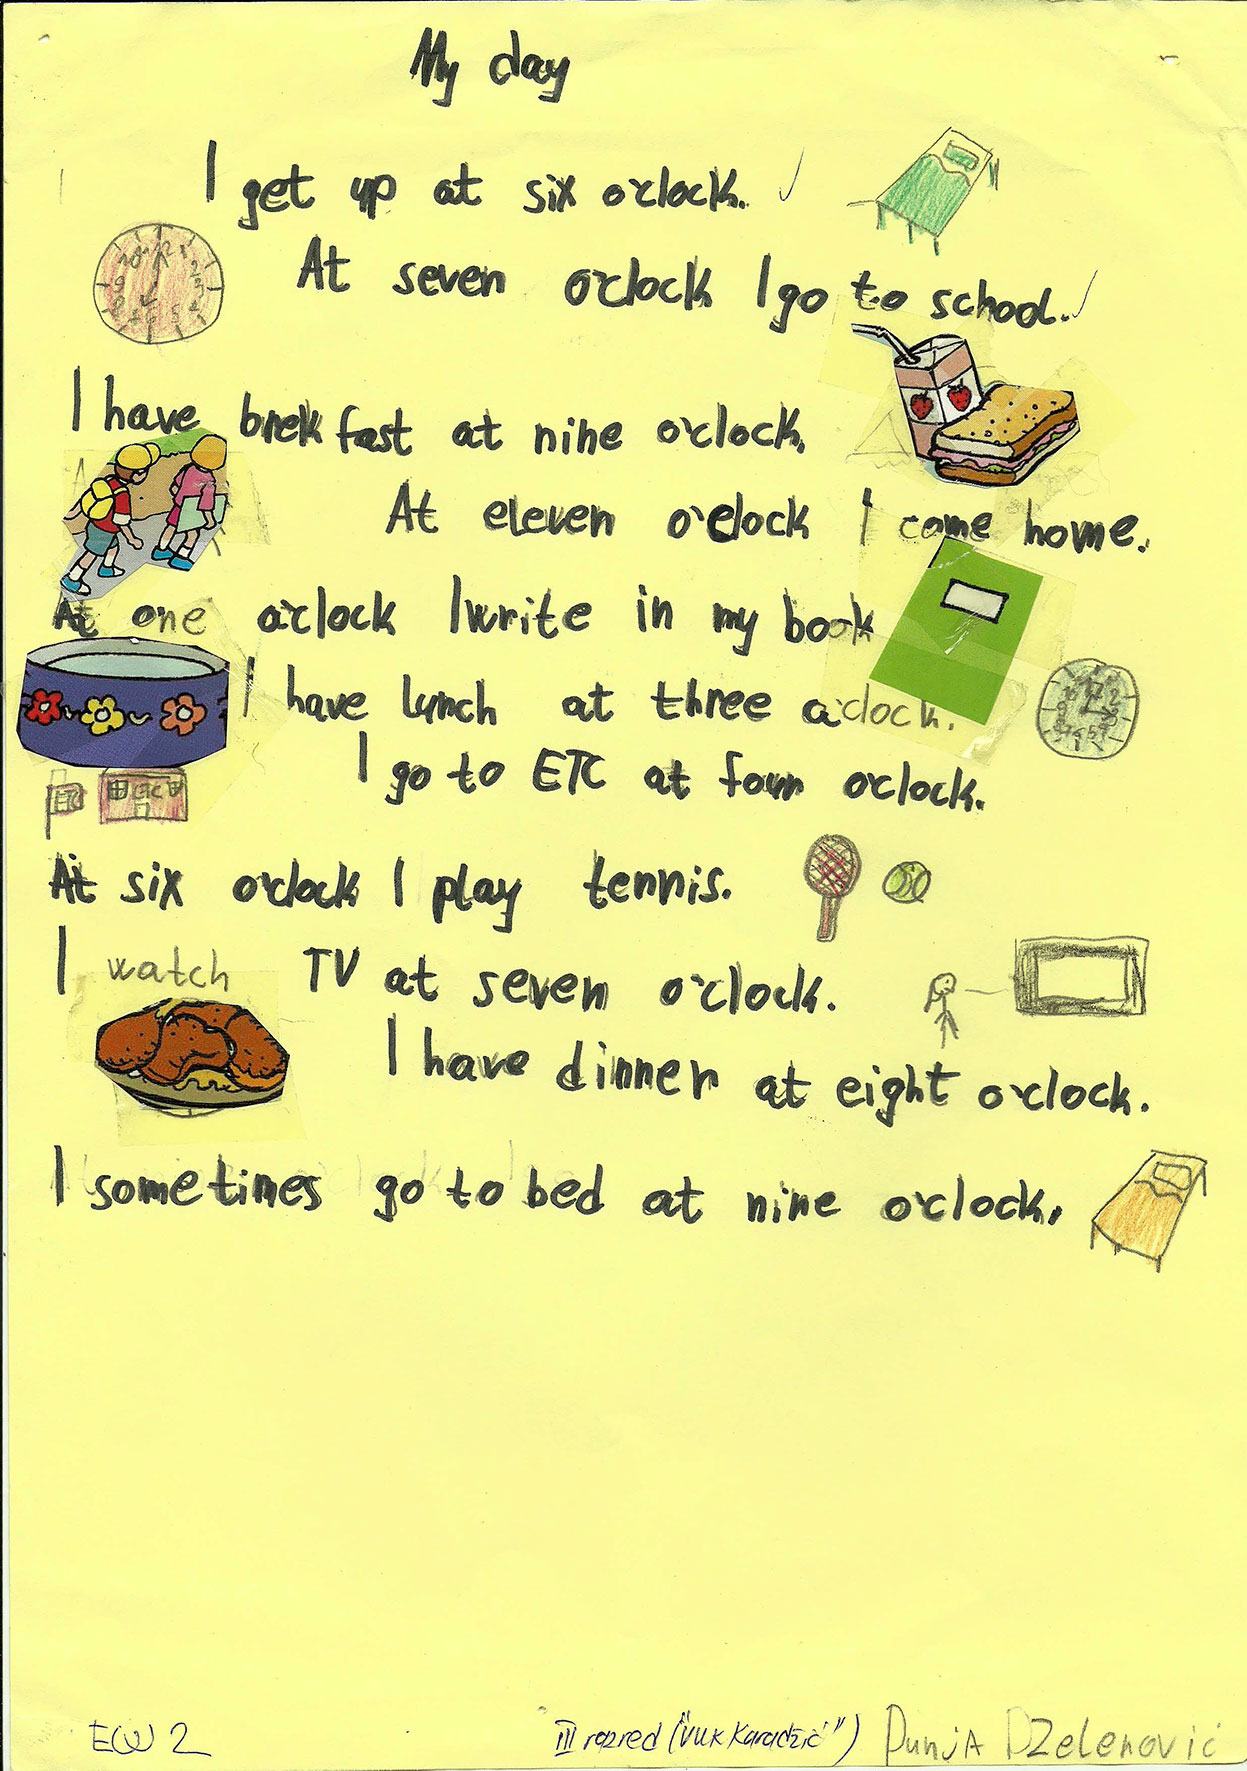 My day
I get up at six o'clock.
At seven o'clock I go to school.
I have brekfast at nine o'clock.
At eleven o'clock I come home.
At one o'clock I write in my book
I have lunch at three o'clock.
I go to ETC at four o'clock.
ETC ETC
At six o'clock I play tennis.
I watch TV at seven o'clock.
I have dinner at eight o'clock.
I sometimes go to bed at nine o'clock.
EW 2 III razred ("Vuk Karadžić") Dunja Dželenović